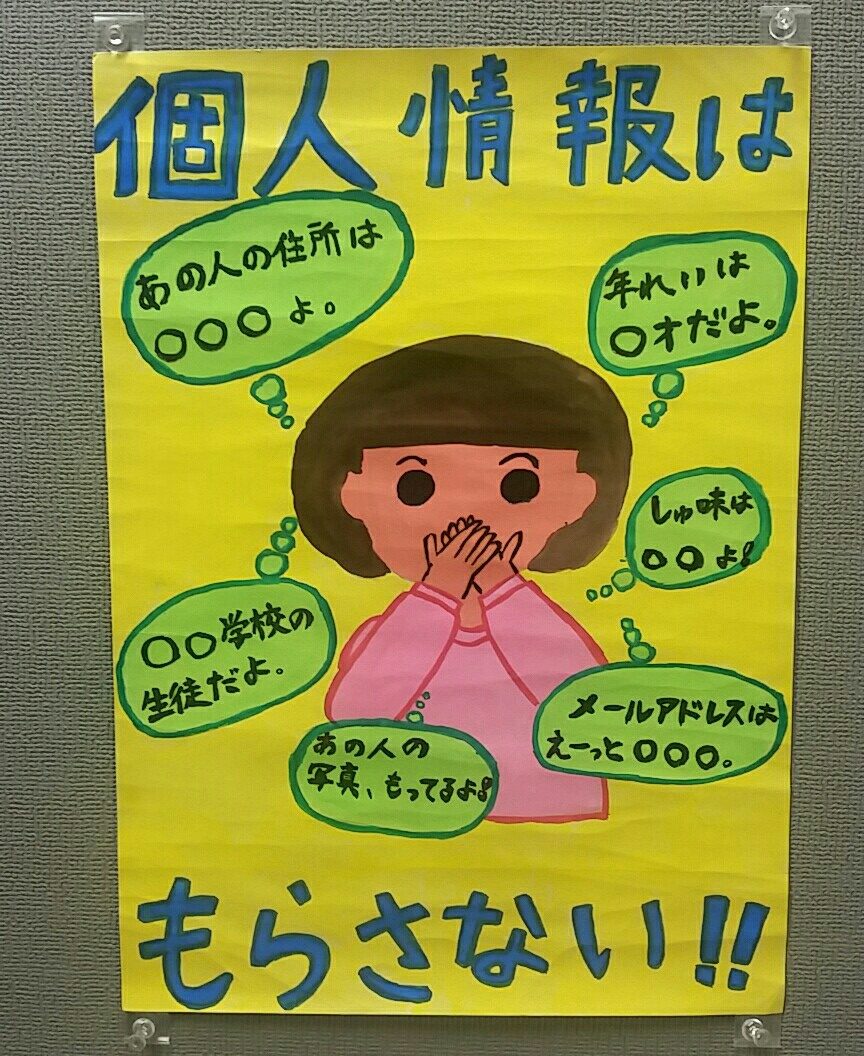 個人情報は
あの人の住所は
○○○よ。
年れいは
○才だよ。
しゅ味は
○○よ!
○○学校の
生徒だよ。
メールアドレスは
えーっと○○○。
あの人の
写真、もってるよ!
もらさない!!